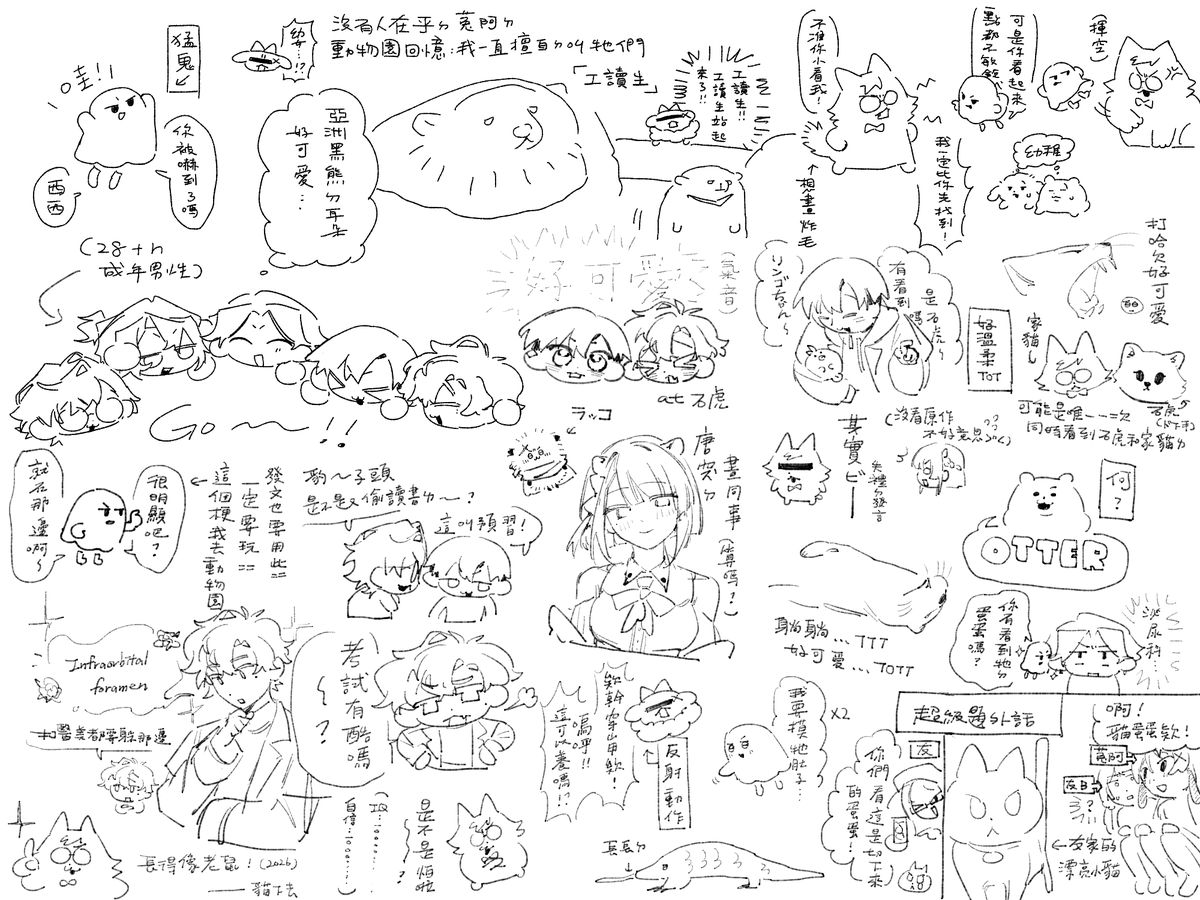 猛鬼
哇!!
你被嚇到了嗎
西西
幼…!?
沒有人在乎ㄉ莵阿ㄉ
動物園回憶:我一直擅自叫牠們
「工讀生」
工讀生!!
工讀生站起
來了!!
亞洲黑熊ㄉ耳朵
好可愛…
不准你小看我!
↑想畫炸毛
可是你看起來
(揮空)
我一定比你先找到!
幼稚
(28+n
成年男性)
Go~!!
好可愛
(氣音)
at 石虎
リンゴちゃん~
有看到嗎
是石虎~
好溫柔
TOT
打哈欠好可愛
家貓
石虎
可能是唯一一次
同時看到石虎和家貓ㄉ
就在那邊啊~
很明顯吧?
發文也要用此==
一定要玩==
這個梗我去動物園
駒~子頭
是不是又偷讀書ㄉ~?
這叫預習!
ラッコ
唐突ㄉ
畫同事(算嗎?)
其實ビー
失禮ㄉ發言
(沒看原作
不好意思)
何?
OTTER
躺躺…TTT
好可愛…TOTT
你有看到牠ㄉ
蛋蛋嗎?
泌尿科…
Infraorbital
foramen
考試有酷嗎
~?
欸幹穿山甲欸!
嗚呼!!
這可以養嗎!?
反射動作
我要摸牠肚子…
x2
超級題外話
友
你們看這是切下來
的蛋蛋!
啊!
貓蛋蛋欸!
莵阿
友B
←友家的
漂亮小貓
長得像老鼠!(2026)
——貓下去
(IQ:1000……
自信:1000……)
是不是怕啦
~?
長長ㄉ